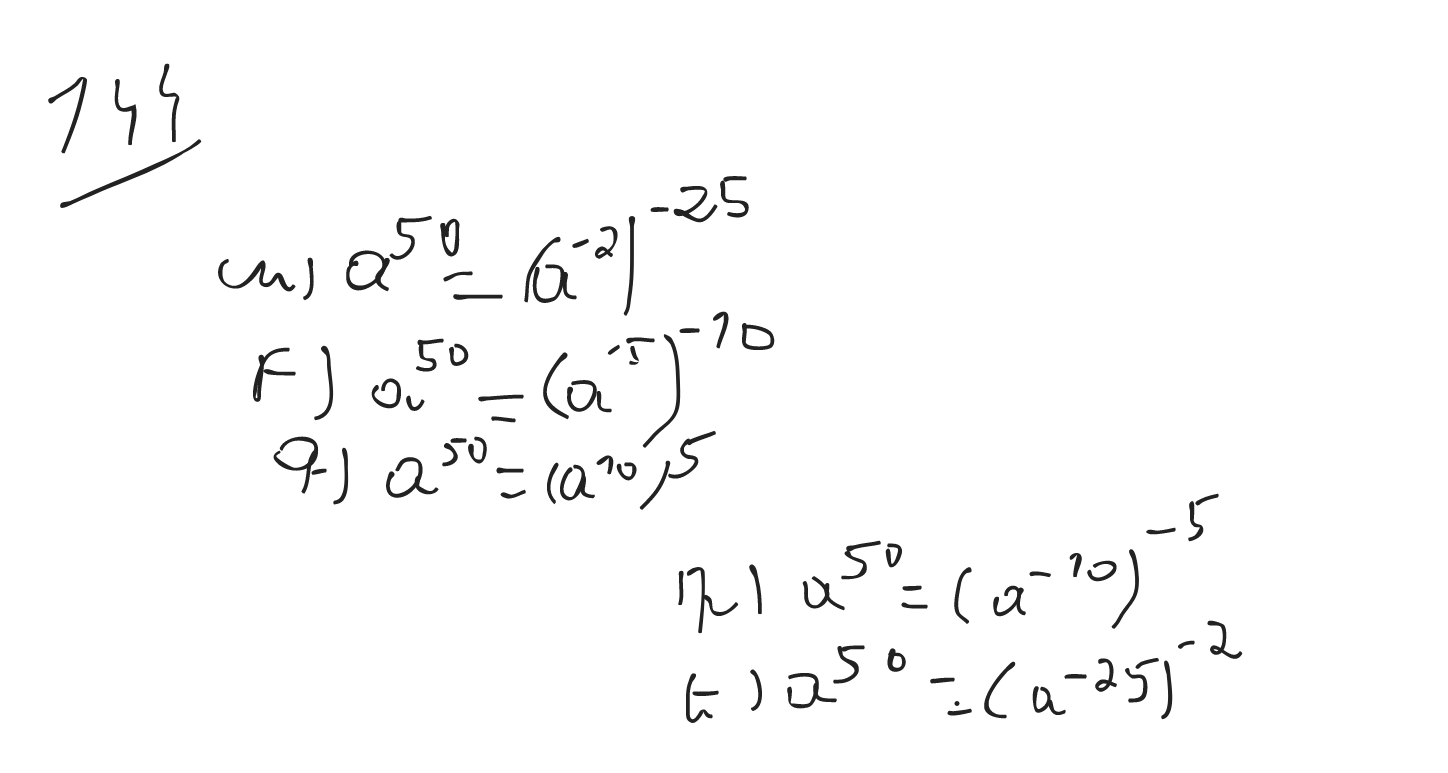 144
ա) a⁵⁰ = (a⁻²)⁻²⁵
բ) a⁵⁰ = (a⁻⁵)⁻¹⁰
գ) a⁵⁰ = (a¹⁰)⁵
դ) a⁵⁰ = (a⁻¹⁰)⁻⁵
ե) a⁵⁰ = (a⁻²⁵)⁻²